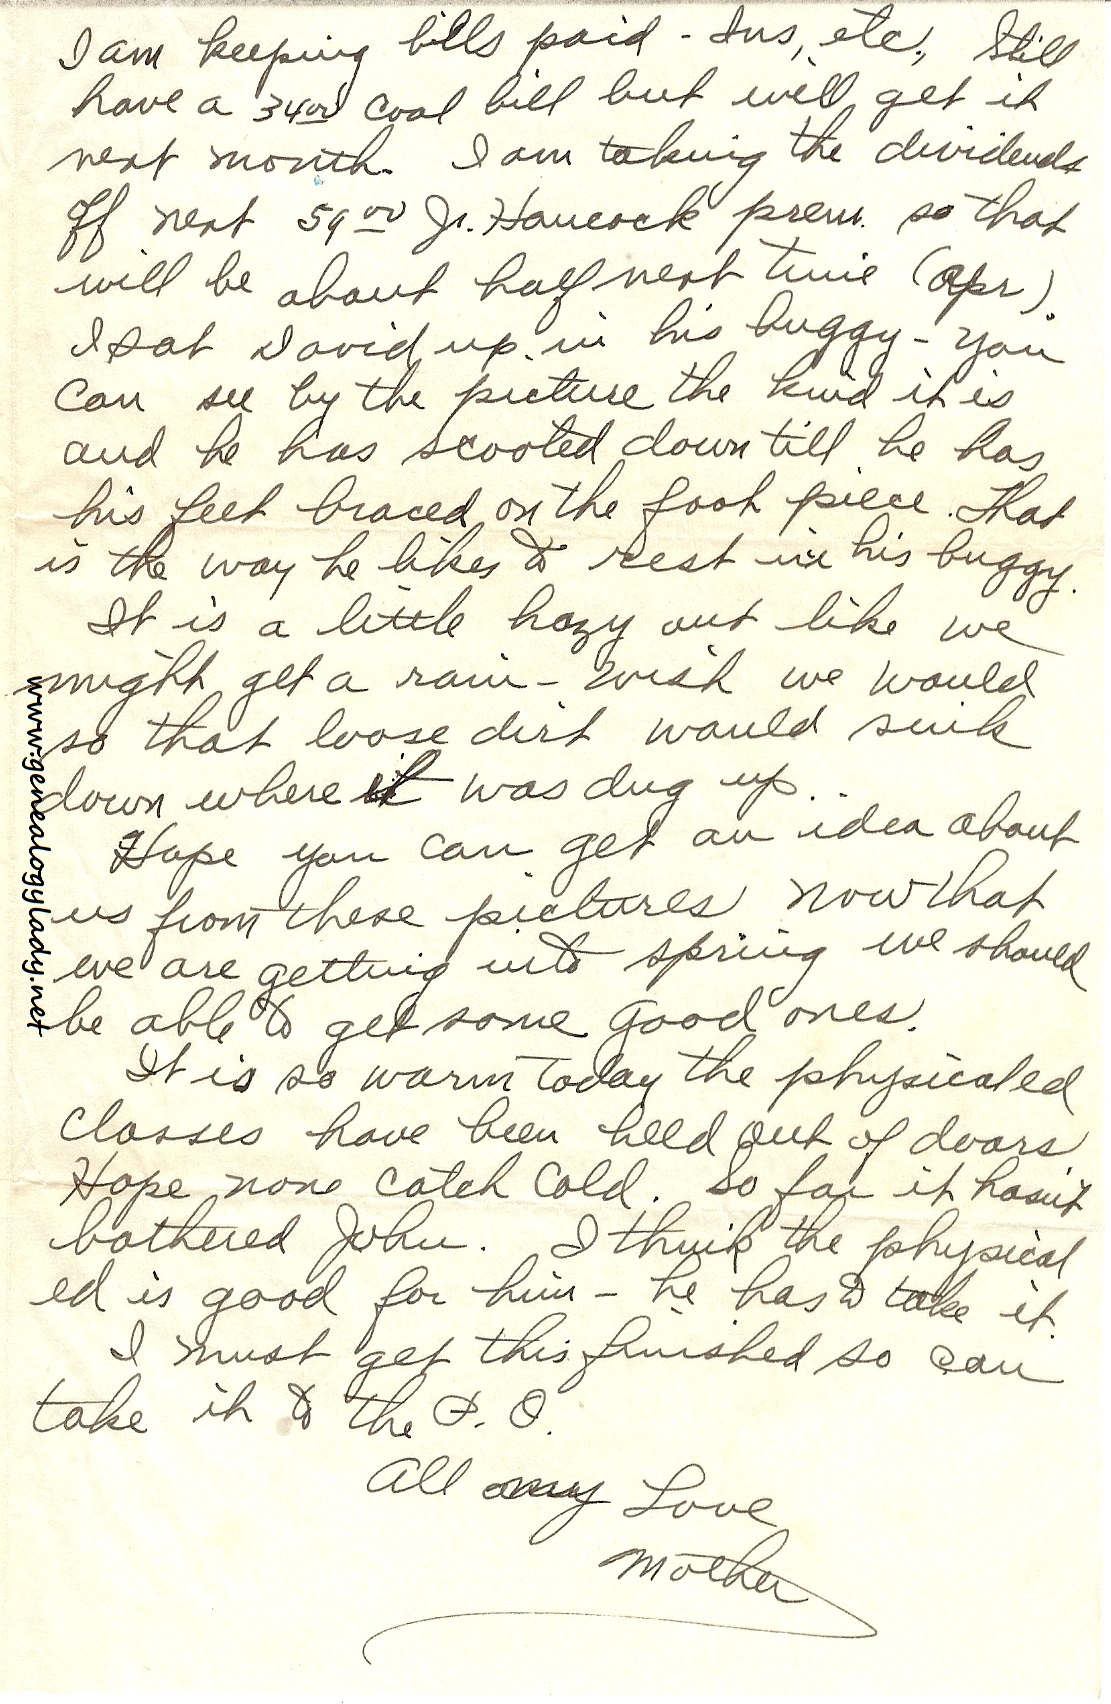 I am keeping bills paid - Ins, etc., Still
have a 3400 coal bill but will get it
next month. I am taking the dividends
off next 59 00 Jr. Hancock prem. so that
will be about half next time (Apr).
I sat David up in his buggy - you
can see by the picture the kind it is
and he has scooted down till he has
his feet braced on the foot piece. That
is the way he likes to rest in his buggy.
It is a little hazy out like we
might get a rain - wish we would
so that loose dirt would sink
down where it was dug up.
Hope you can get an idea about
us from these pictures now that
we are getting into spring we should
be able to get some good ones.
It is so warm today the physical ed
classes have been held out of doors
Hope none catch cold. So far it hasn't
bothered John. I think the physical
ed is good for him - he has to take it.
I must get this finished so can
take it to the P.O.
All my Love
Mother
www.genealogylady.net